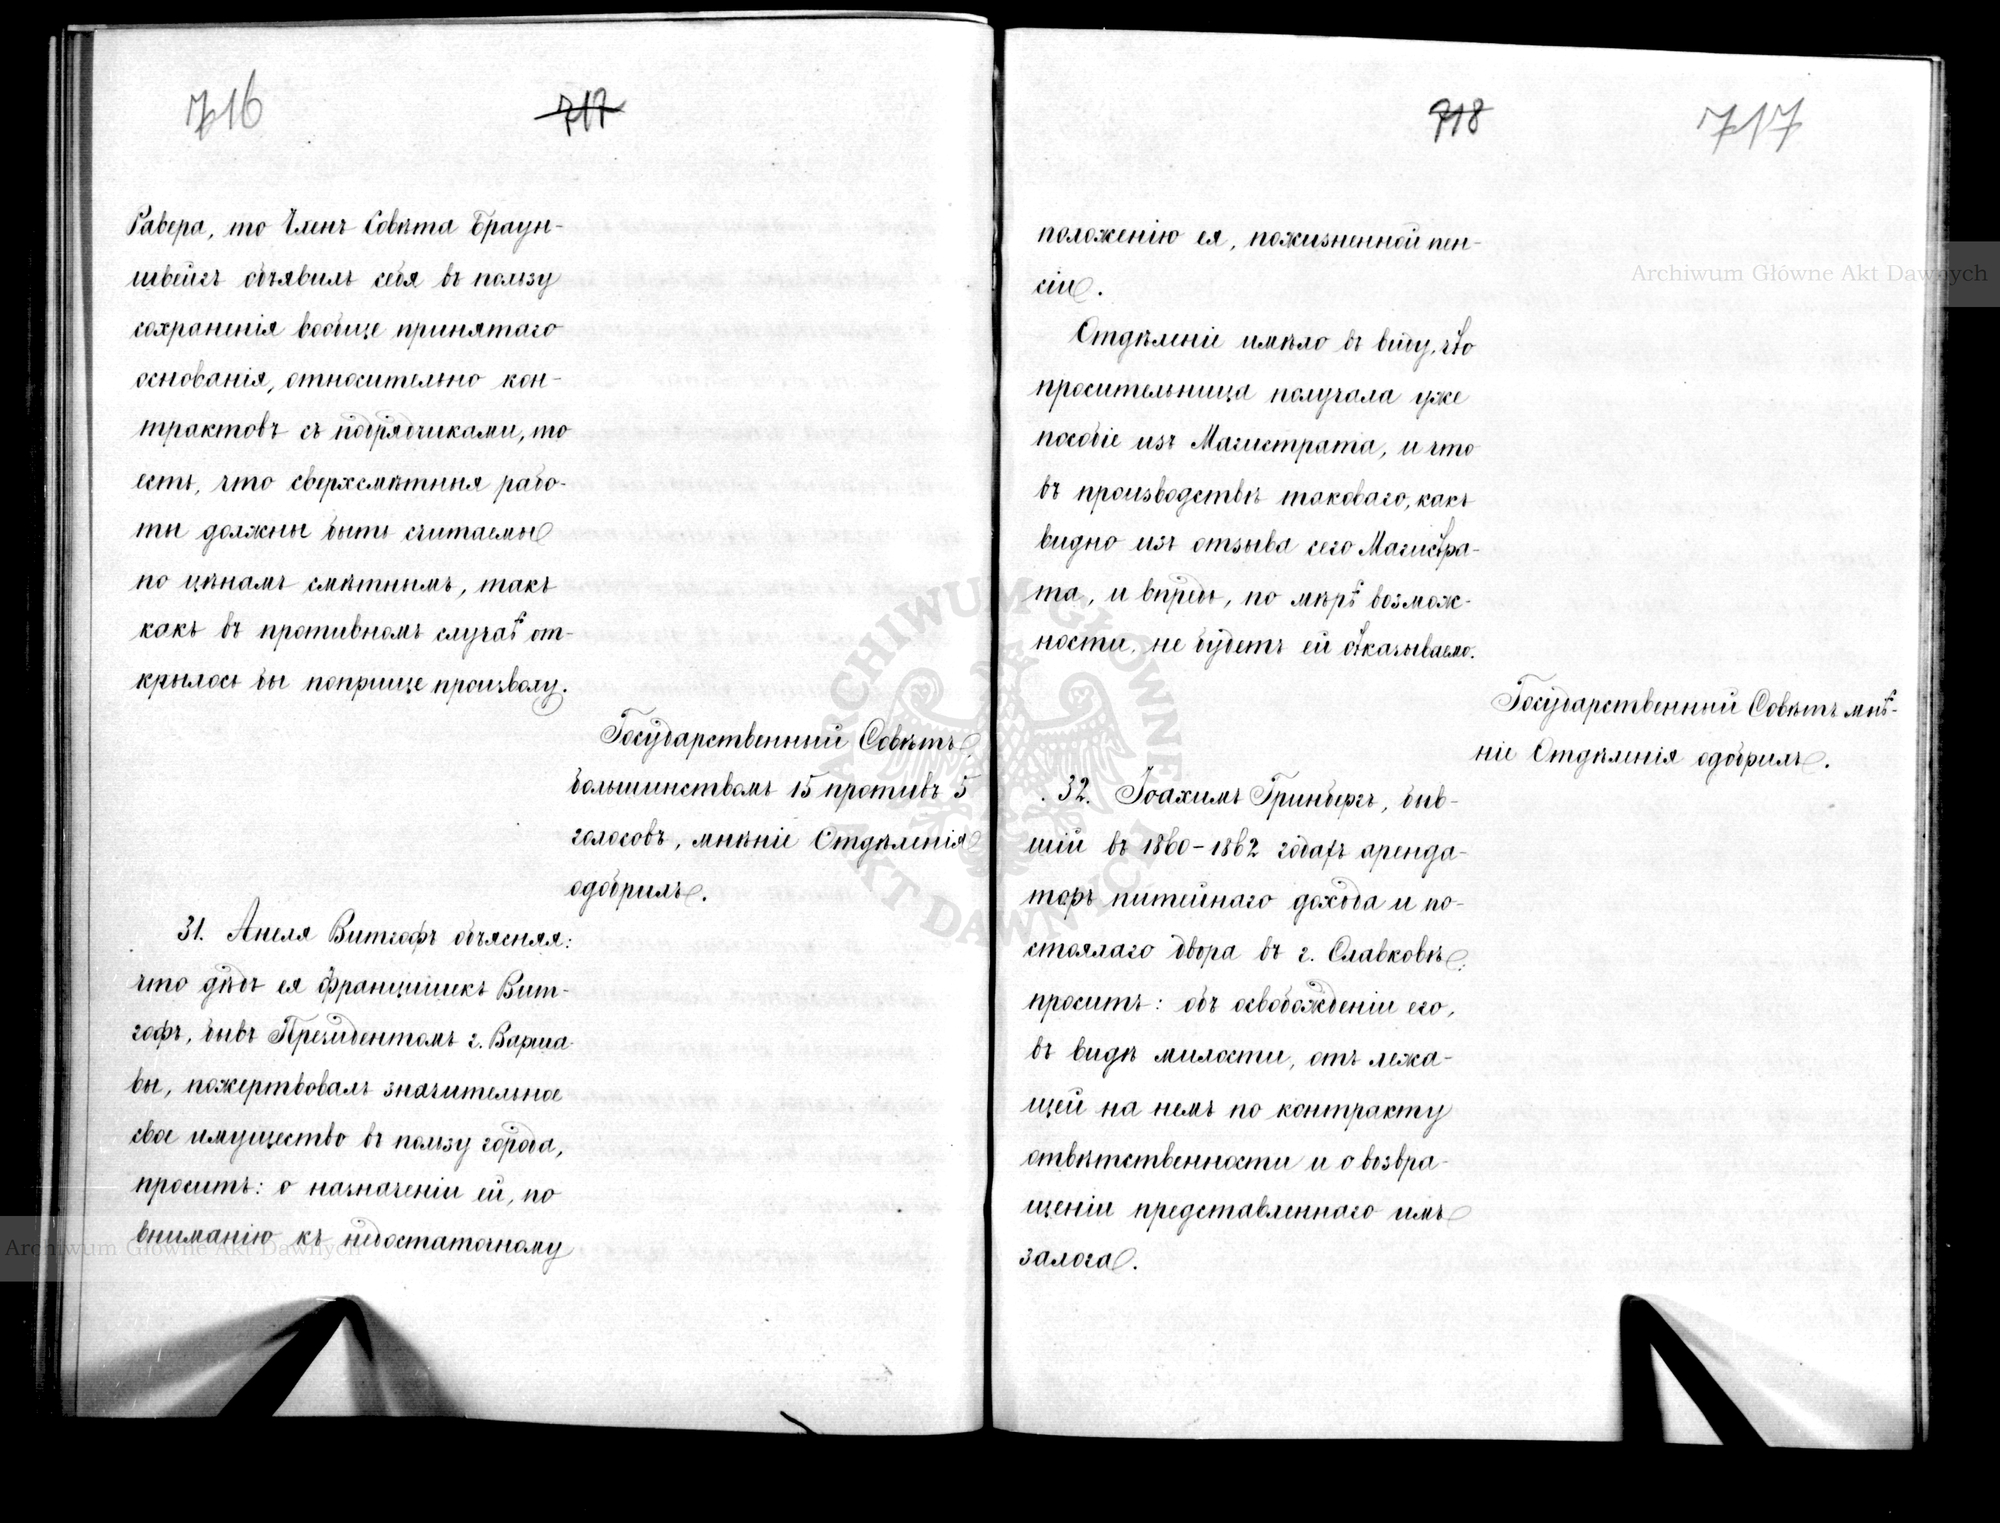 716
717
Равера, то Членъ Совѣта Браун-
швейгъ объявилъ себя въ пользу
сохраненія вообще принятаго
основанія, относительно кон-
трактовъ съ подрядчиками, то
есть, что сверхсмѣтныя рабо-
ты должны быть считаемы
по цѣнамъ смѣтнымъ, такъ
какъ въ противномъ случаѣ от-
крылось бы поприще произволу.
Государственный Совѣтъ
большинствомъ 15 противъ 5
голосовъ, мнѣніе Отдѣленія
одобрилъ.
31. Анеля Витгофъ объясняя:
что дѣдъ ея Францишекъ Вит-
гофъ, бывъ Президентомъ г. Варша-
вы, пожертвовалъ значительное
свое имущество въ пользу города,
проситъ: о назначеніи ей, по
вниманію къ недостаточному
718
717
положенію ея, пожизненной пен-
сіи.
Отдѣленіе имѣло въ виду, что
просительница получала уже
пособіе изъ Магистрата, и что
въ производствѣ таковаго, какъ
видно изъ отзыва сего Магистра-
та, и впредь, по мѣрѣ возмож-
ности, не будетъ ей отказываемо.
Государственный Совѣтъ мнѣ-
ніе Отдѣленія одобрилъ.
32. Іоахимъ Гринбергъ, быв-
шій въ 1860-1862 годахъ аренда-
торъ питейнаго дохода и по-
стоялаго двора въ г. Славковѣ,
проситъ: объ освобожденіи его,
въ видѣ милости, отъ лежа-
щей на немъ по контракту
отвѣтственности и о возвра-
щеніи представленнаго имъ
залога.
Archiwum Główne Akt Dawnych
Archiwum Główne Akt Dawnych
ARCHIWUM GŁÓWNE
AKT DAWNYCH